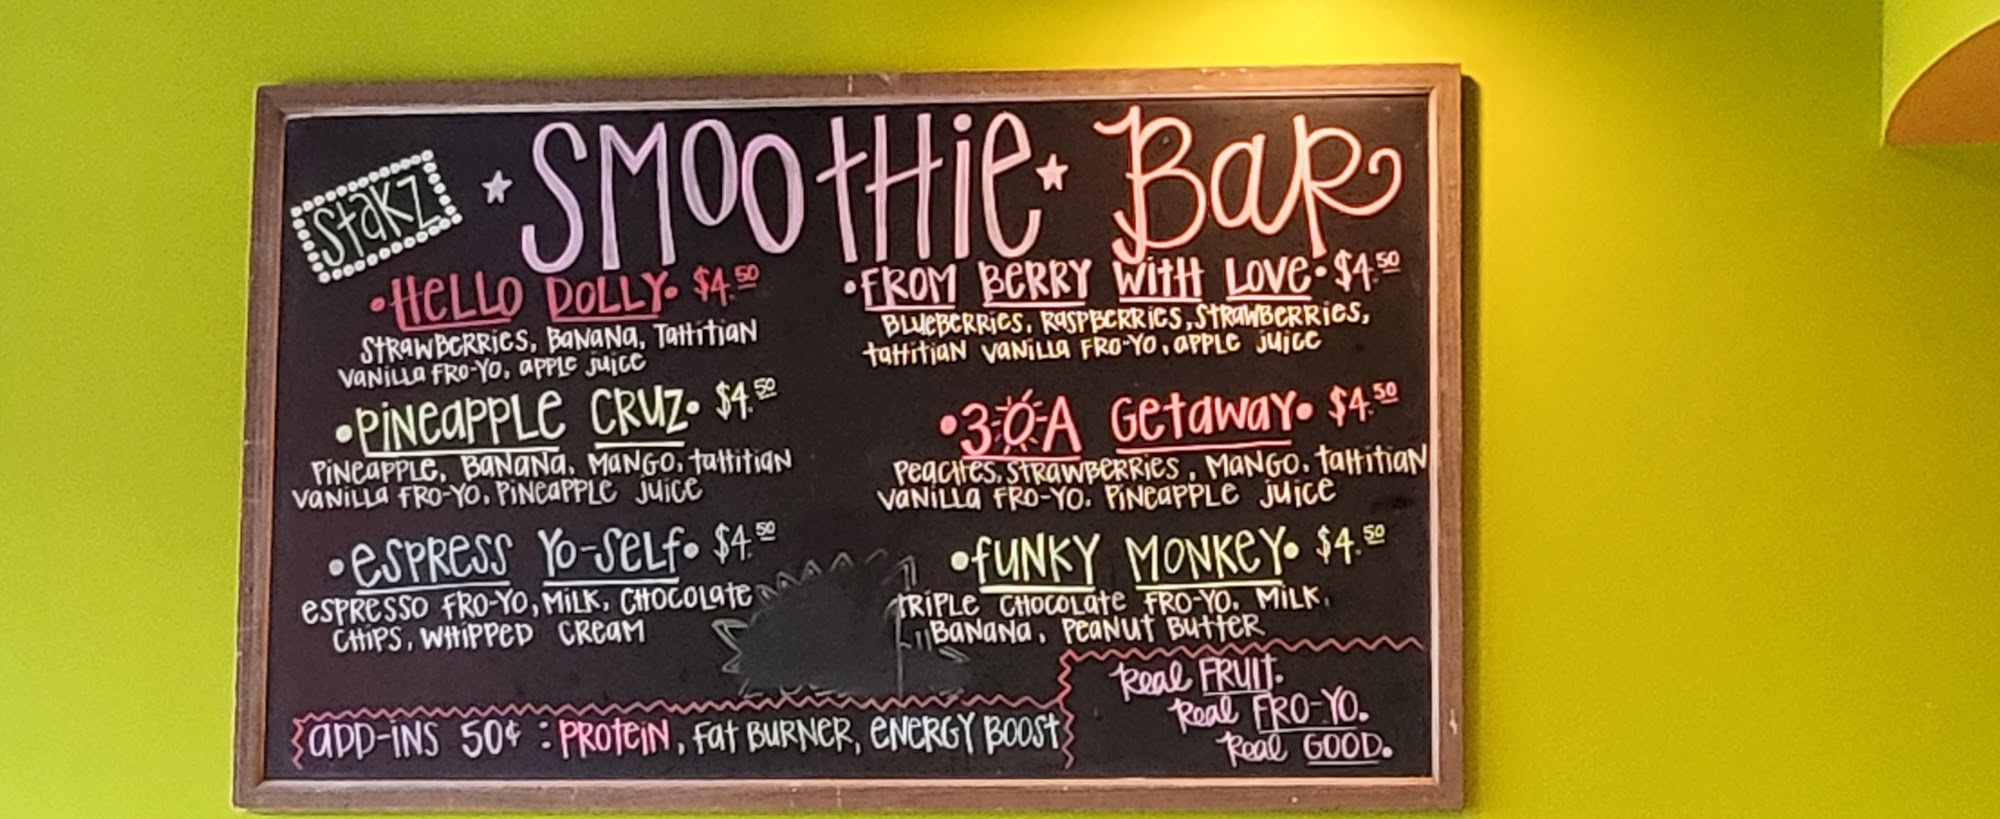 Stakz
SMOOTHIE BAR
HELLO DOLLY $4.50
STRAWBERRIES, BANANA, TAHITIAN
VANILLA FRO-YO, APPLE JUICE
PINEAPPLE CRUZ $4.50
PINEAPPLE, BANANA, MANGO, TAHITIAN
VANILLA FRO-YO, PINEAPPLE JUICE
ESPRESS YO-SELF $4.50
ESPRESSO FRO-YO, MILK, CHOCOLATE
CHIPS, WHIPPED CREAM
FROM BERRY WITH LOVE $4.50
BLUEBERRIES, RASPBERRIES, STRAWBERRIES,
TAHITIAN VANILLA FRO-YO, APPLE JUICE
3-0-A GETAWAY $4.50
PEACHES, STRAWBERRIES, MANGO, TAHITIAN
VANILLA FRO-YO, PINEAPPLE JUICE
FUNKY MONKEY $4.50
TRIPLE CHOCOLATE FRO-YO, MILK,
BANANA, PEANUT BUTTER
ADD-INS 50¢ : PROTEIN, FAT BURNER, ENERGY BOOST
Real FRUIT.
Real FRO-YO.
Real GOOD.